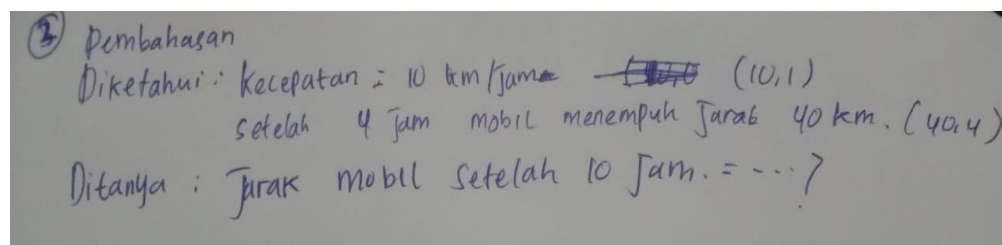 2 Pembahasan
Diketahui : Kecepatan = 10 km/jam (10,1)
setelah 4 jam mobil menempuh Jarak 40 km. (40,4)
Ditanya : Jarak mobil setelah 10 Jam. = ...?